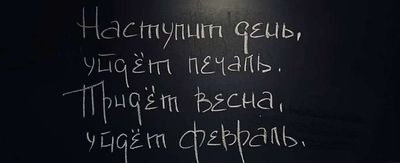 Наступит день,
уйдёт печаль.
Придёт весна,
уйдёт февраль.